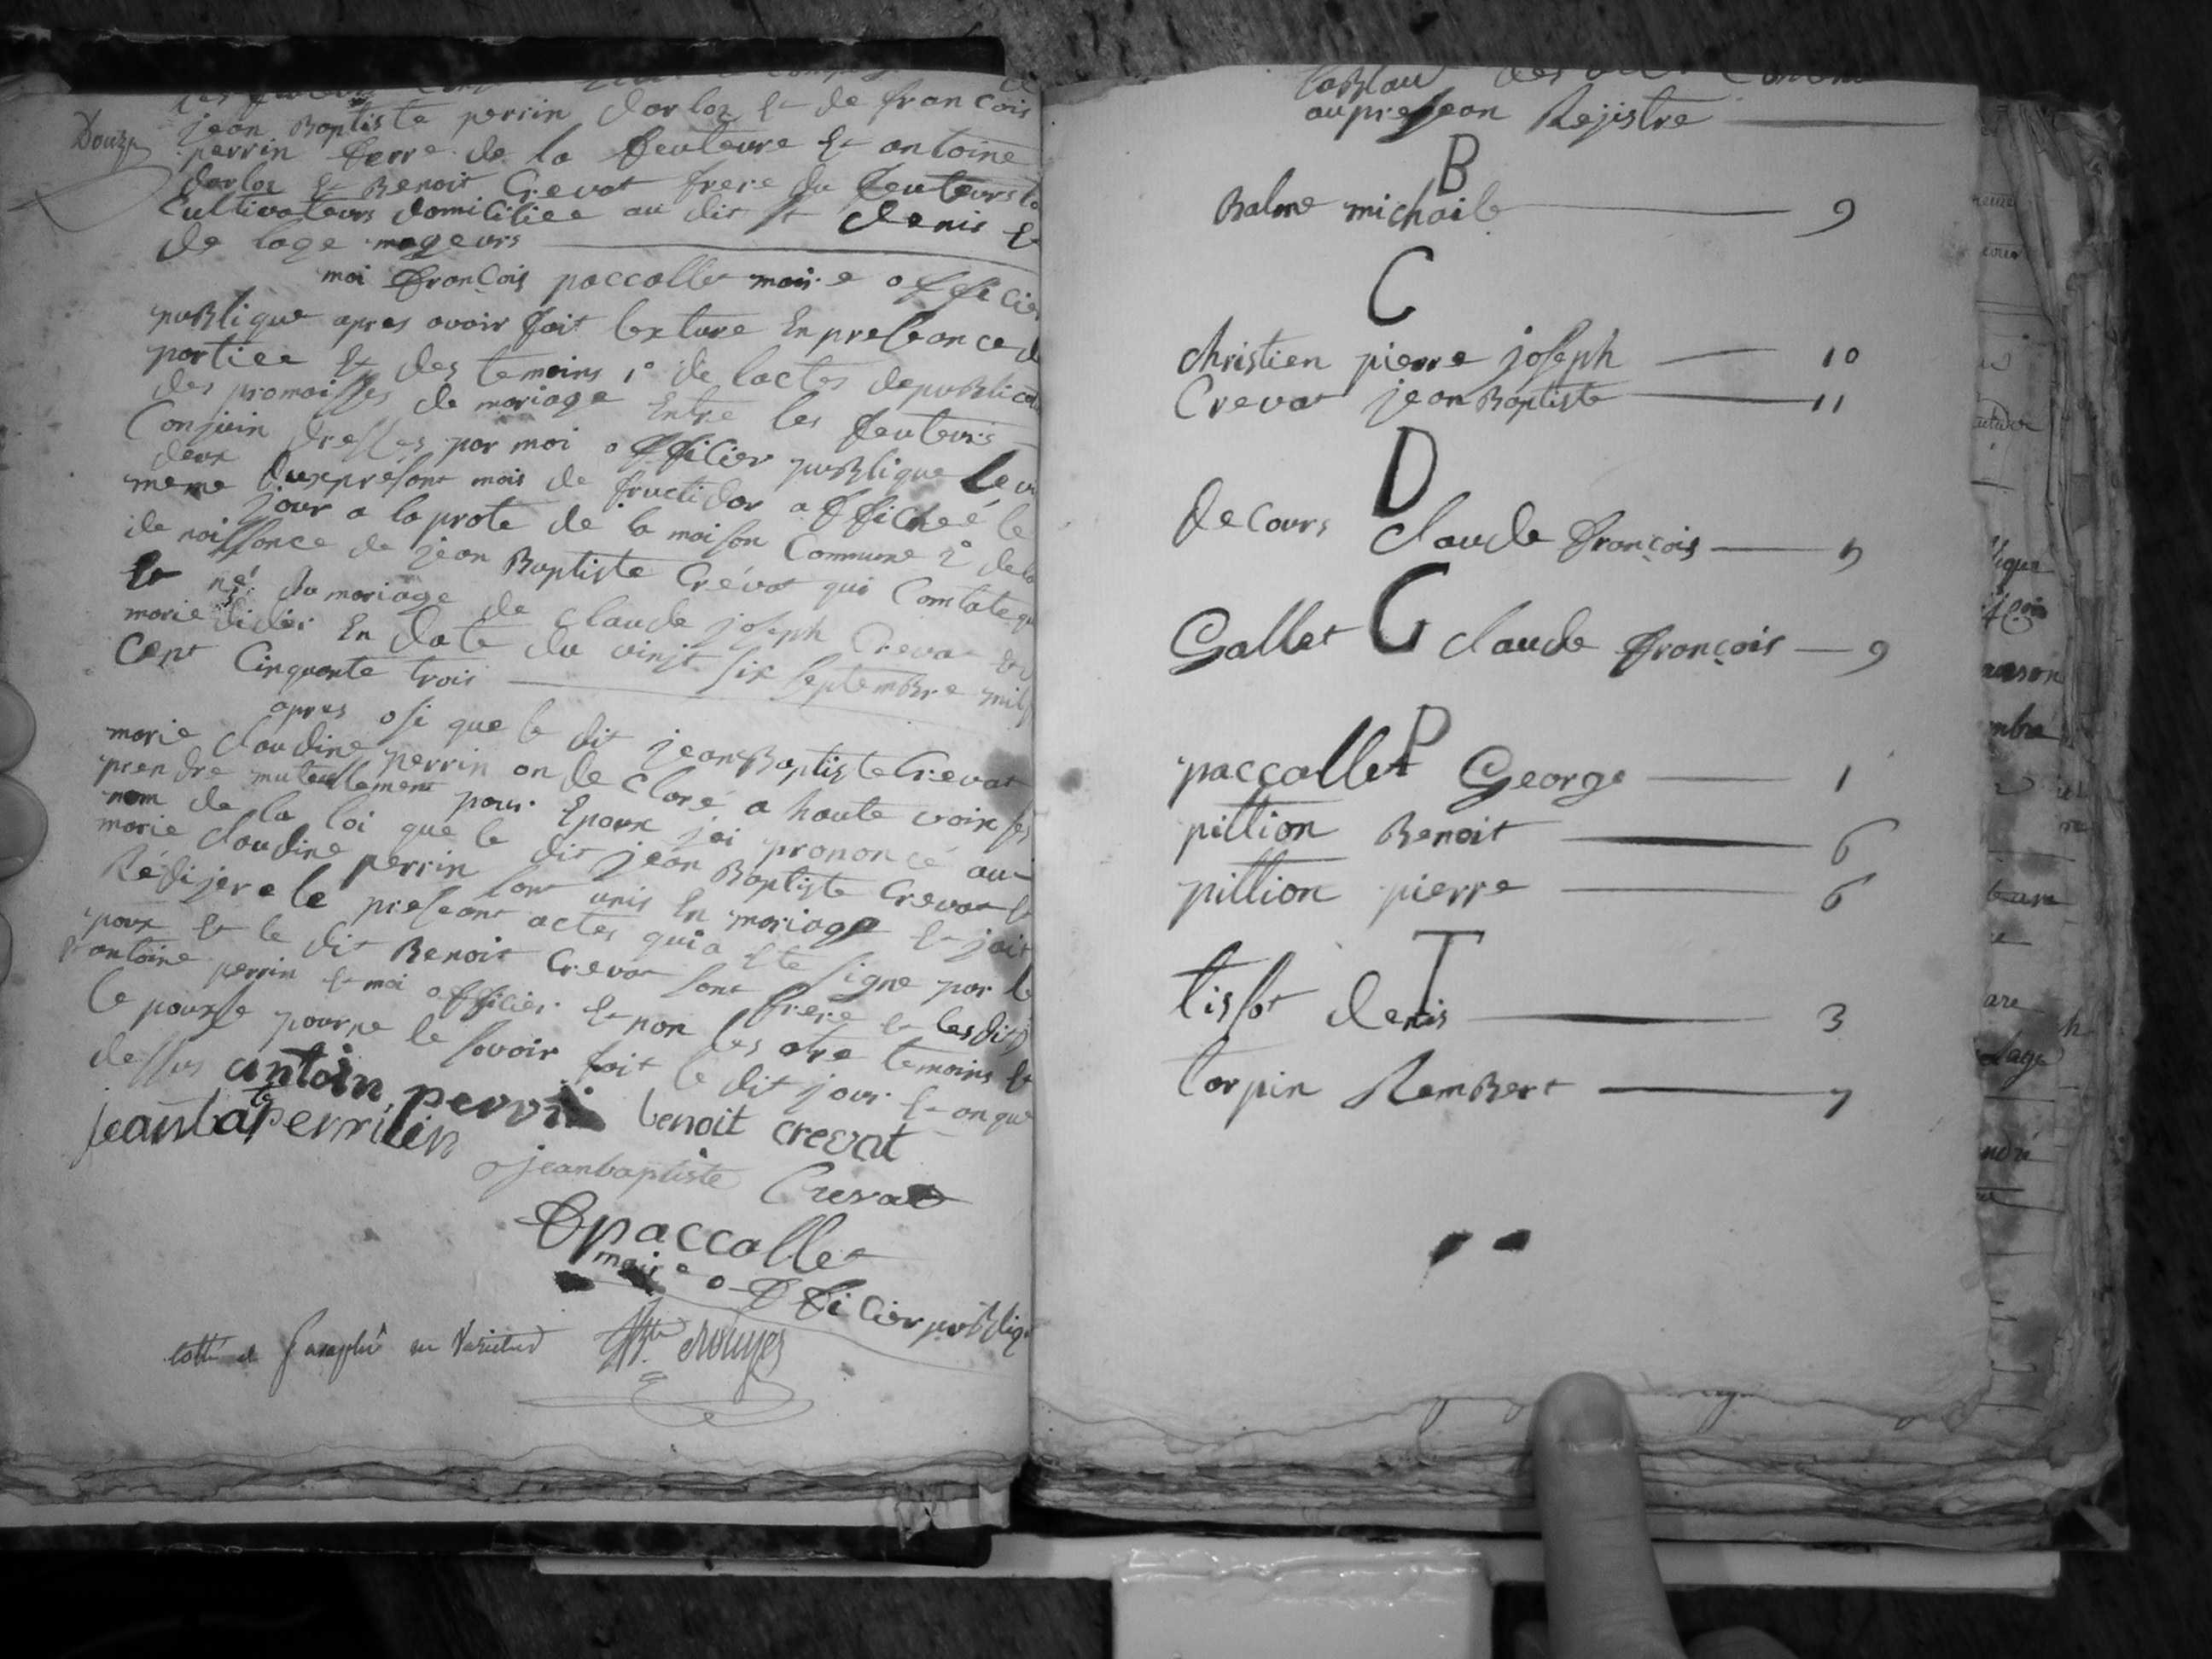 Douze
jean Baptiste perrin darloz Et de francois
perrin frere de la feuteure Et antoine
darloz Et Benoit Crevat frere du feuteurs
Cultivateurs domiciliee au dit st denis Et
de lage mageurs
moi françois paccallet maire officier
publique apres avoir fait lexture En preseance
partiee Et des temoins 1° de lactes de publica
des promaisses de mariage Entre les feuteurs
Conjoin dresses par moi officier publique le
deux du present mois de fructidor affichéé le
meme jour a la prote de la maison Commune 2° de la
de naissance de jean Baptiste Crévat qui Constate qu
Est né du mariage de Claude joseph Crevat
marie didier En date du vinjt six septembre mil
Cent Cinquante trois
apres osi que le dit jean Baptiste Crevat
marie claudine perrin on de Claré a haute voix
prendre mutuellement pour Epoux jai prononcé au
nom de la loi que le dit jean Baptiste Crevat Et
marie claudine perrin sont unis En mariage Et jait
Rédijere le preseant actes qui a Ete signe par le
poux Et le dit Benoit Crevat son frere Et les dits
Et antoine perrin Et moi officier Et non les otre temoins Et
le pouxse pour ne le savoir fait le dit jour Et an que
dessus antoin perrin benoit crevat
jeanbate perrin
jeanbaptiste Crevat
f paccallet
maire officier publiq
cotté et paraphé
tablau des
au preseon Rejistre
B
Balme michaile 9
C
christien pierre joseph 10
Crevat jean Baptiste 11
D
decours claude françois 5
G
Gallet claude françois 9
P
paccallet George 1
pittion Benoit 6
pittion pierre 6
T
tissot denis 3
torpin Rembert 7